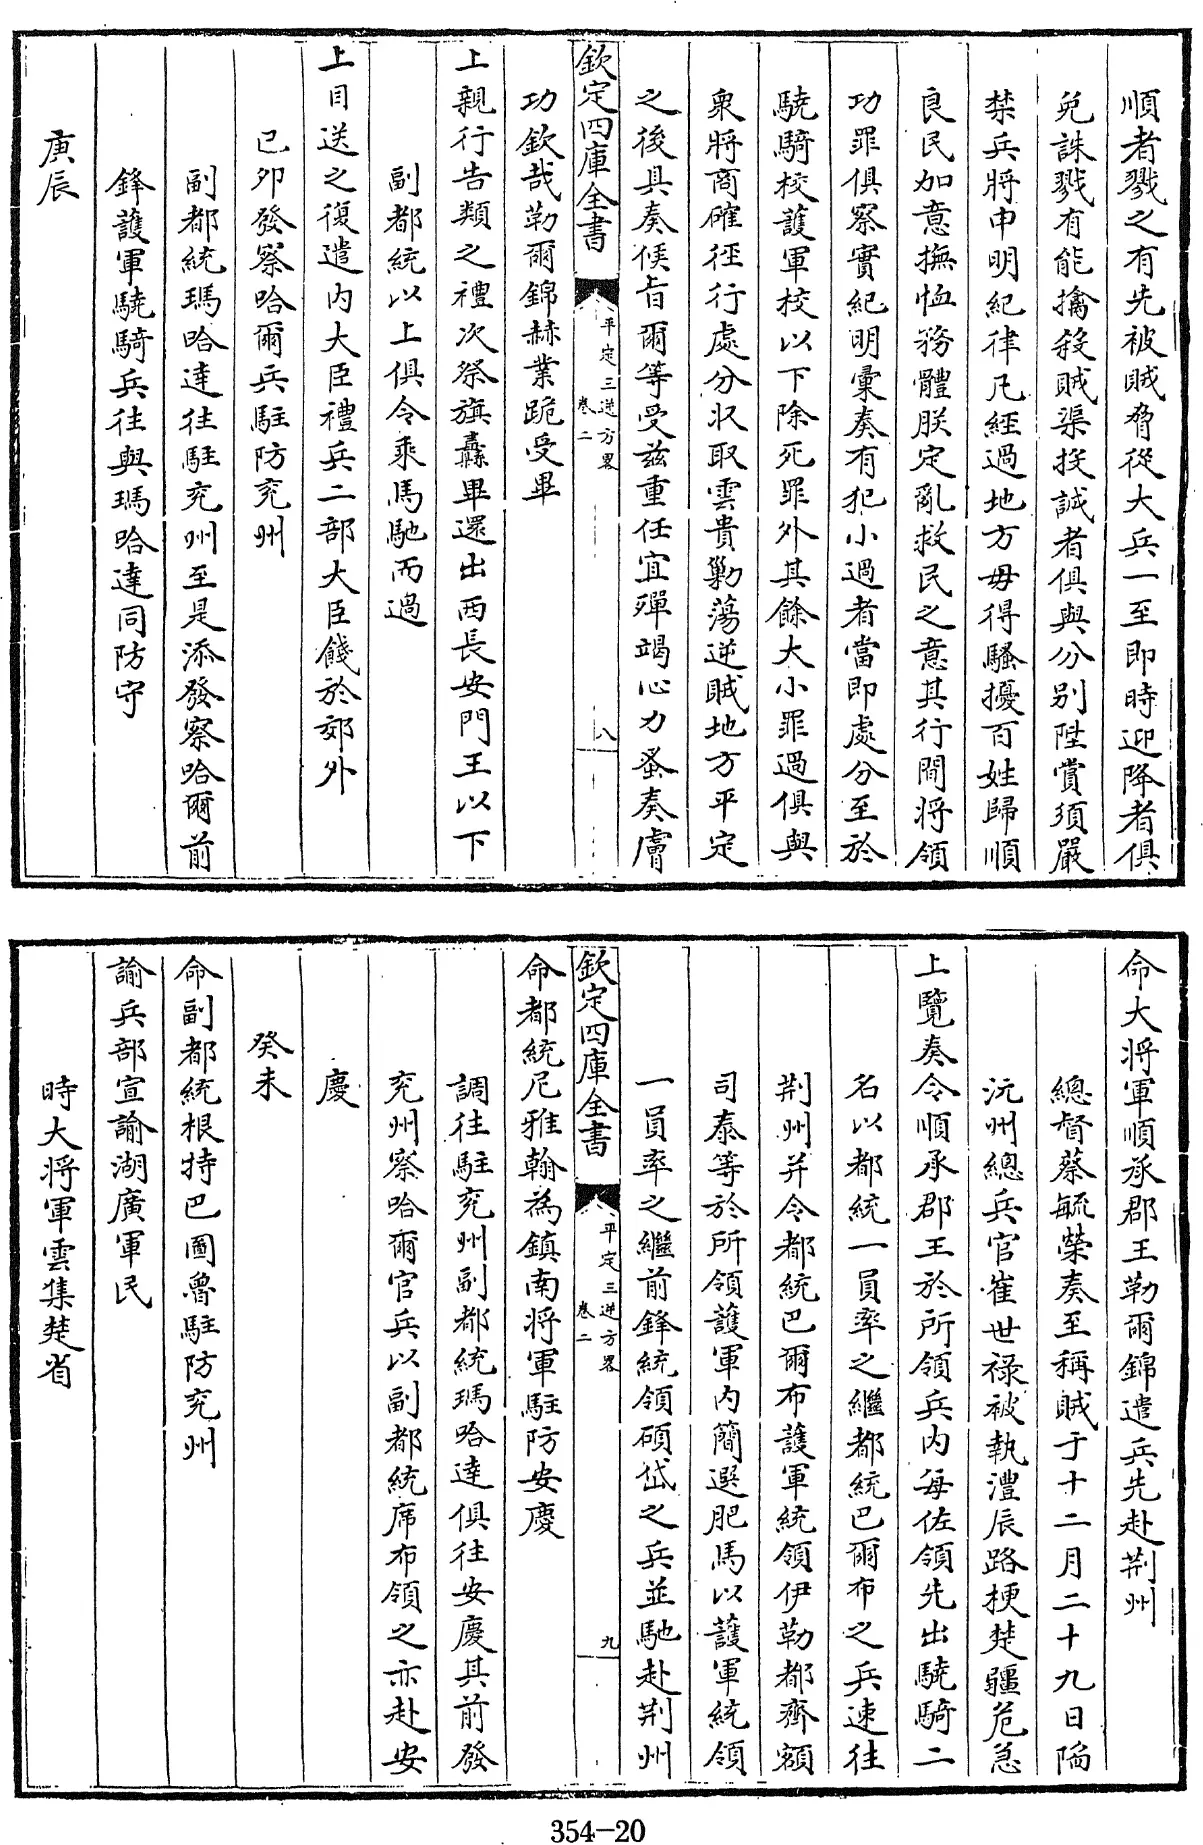 順者戮之有先被賊脅從大兵一至即時迎降者俱
免誅戮有能擒殺賊渠投誠者俱與分别陞賞須嚴
禁兵將申明紀律凡經過地方毋得騷擾百姓歸順
良民加意撫恤務體朕定亂救民之意其行間將領
功罪俱察實紀明彙奏有犯小過者當即處分至於
驍騎校護軍校以下除死罪外其餘大小罪過俱與
衆將商確徑行處分收取雲貴勦蕩逆賊地方平定
之後具奏候㫖爾等受兹重任宜殫竭心力蚤奏膚
欽定四庫全書
平定三逆方畧
卷二
八
功欽哉勒爾錦赫業跪受畢
上親行告類之禮次祭旗纛畢還出西長安門王以下
副都統以上俱令乘馬馳而過
上目送之復遣内大臣禮兵二部大臣餞於郊外
己卯發察哈爾兵駐防兖州
副都統瑪哈達往駐兖州至是添發察哈爾前
鋒護軍驍騎兵往與瑪哈達同防守
庚辰
命大將軍順承郡王勒爾錦遣兵先赴荆州
總督蔡毓榮奏至稱賊于十二月二十九日陷
沅州總兵官崔世禄被執澧辰路梗楚疆危急
上覽奏令順承郡王於所領兵内每佐領先出驍騎二
名以都統一員率之繼都統巴爾布之兵速往
荆州并令都統巴爾布護軍統領伊勒都齊額
司泰等於所領護軍内簡選肥馬以護軍統領
一員率之繼前鋒統領碩岱之兵並馳赴荆州
欽定四庫全書
平定三逆方畧
卷二
九
命都統尼雅翰為鎮南將軍駐防安慶
調往駐兖州副都統瑪哈達俱往安慶其前發
兖州察哈爾官兵以副都統席布領之亦赴安
慶
癸未
命副都統根特巴圖魯駐防兖州
諭兵部宣諭湖廣軍民
時大將軍雲集楚省
354-20